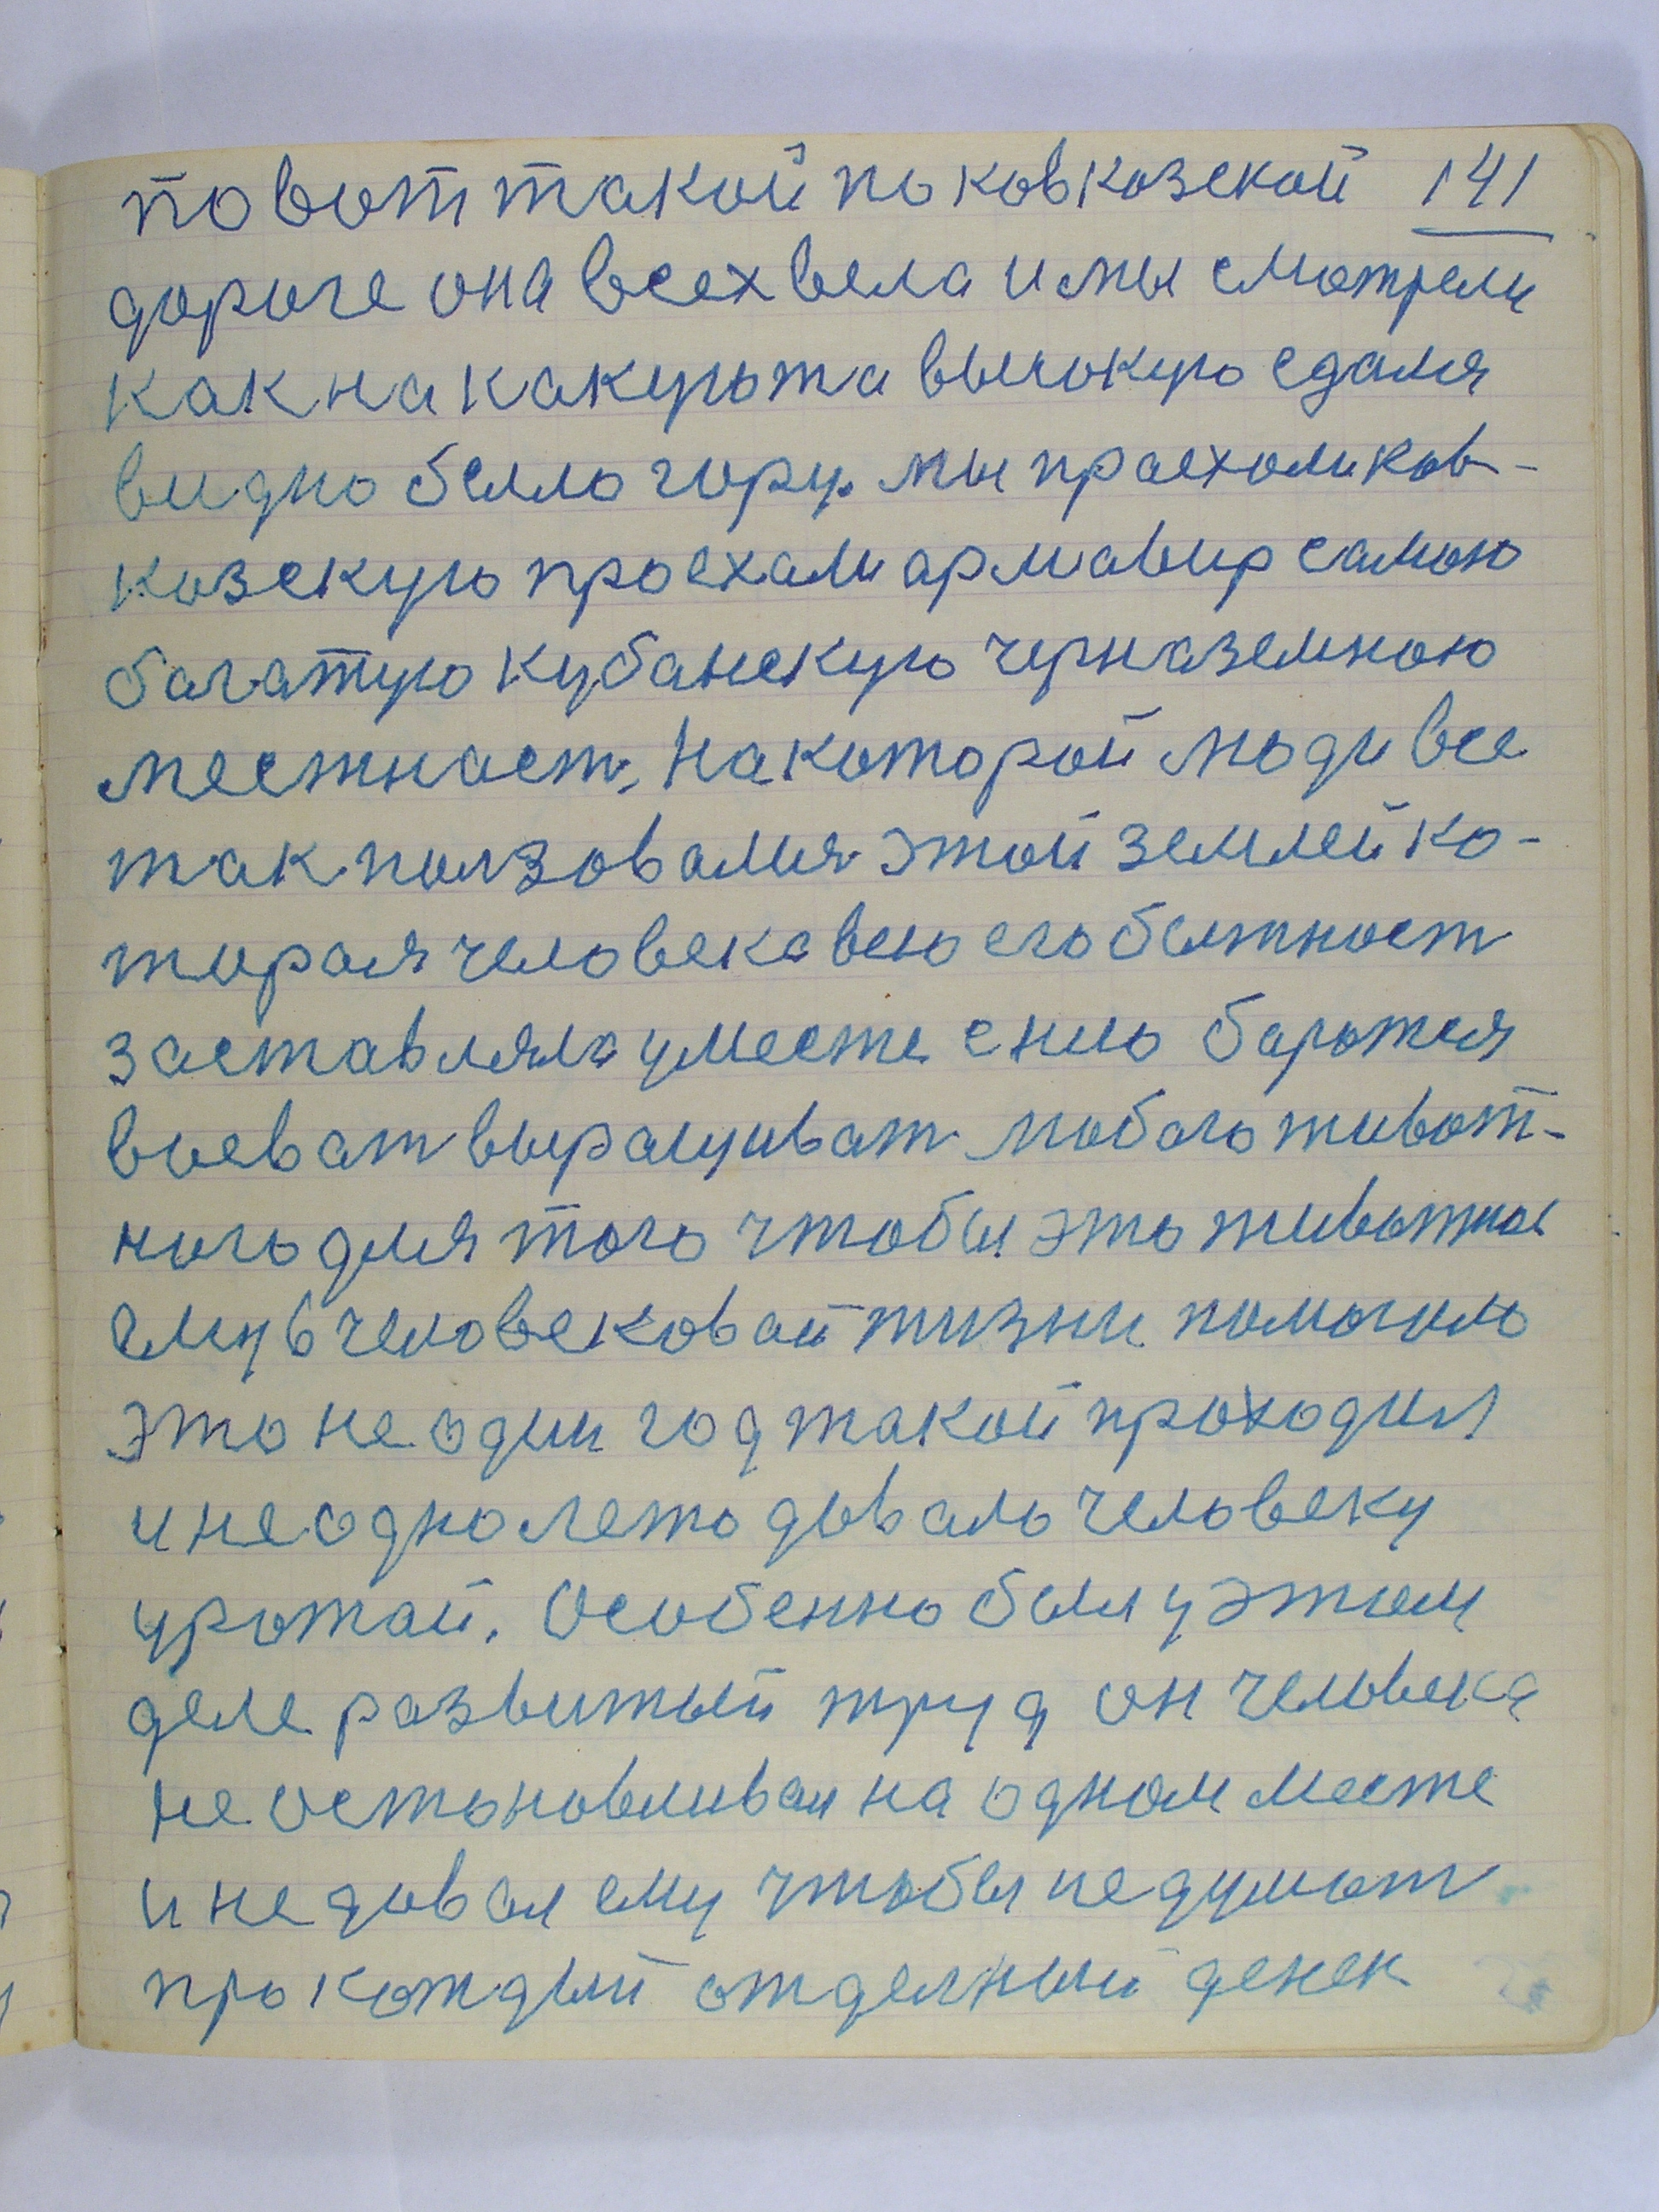 по вот такой по ковказской 141
дороге она всех вела и мы смотрели
как на какуюто высокую сдаля
видно было гору. мы проехоли ков-
козскую проехали армавир самою
багатую кубанскую черназемною
местност, на которой люди все
так ползовалися этой землей ко-
торая человека всю его бытност
заставляла уместе с нею баротся
воеват выращиват любого живот-
ного для того чтобы это животное
ему в человековай жизни помогало
это не один год такой проходил
и не одно лето довало человеку
урожай. Особенно был у этом
деле развитый труд он человека
не остоновливал на одном месте
и не довал ему чтобы не думат
про каждый отделный денек